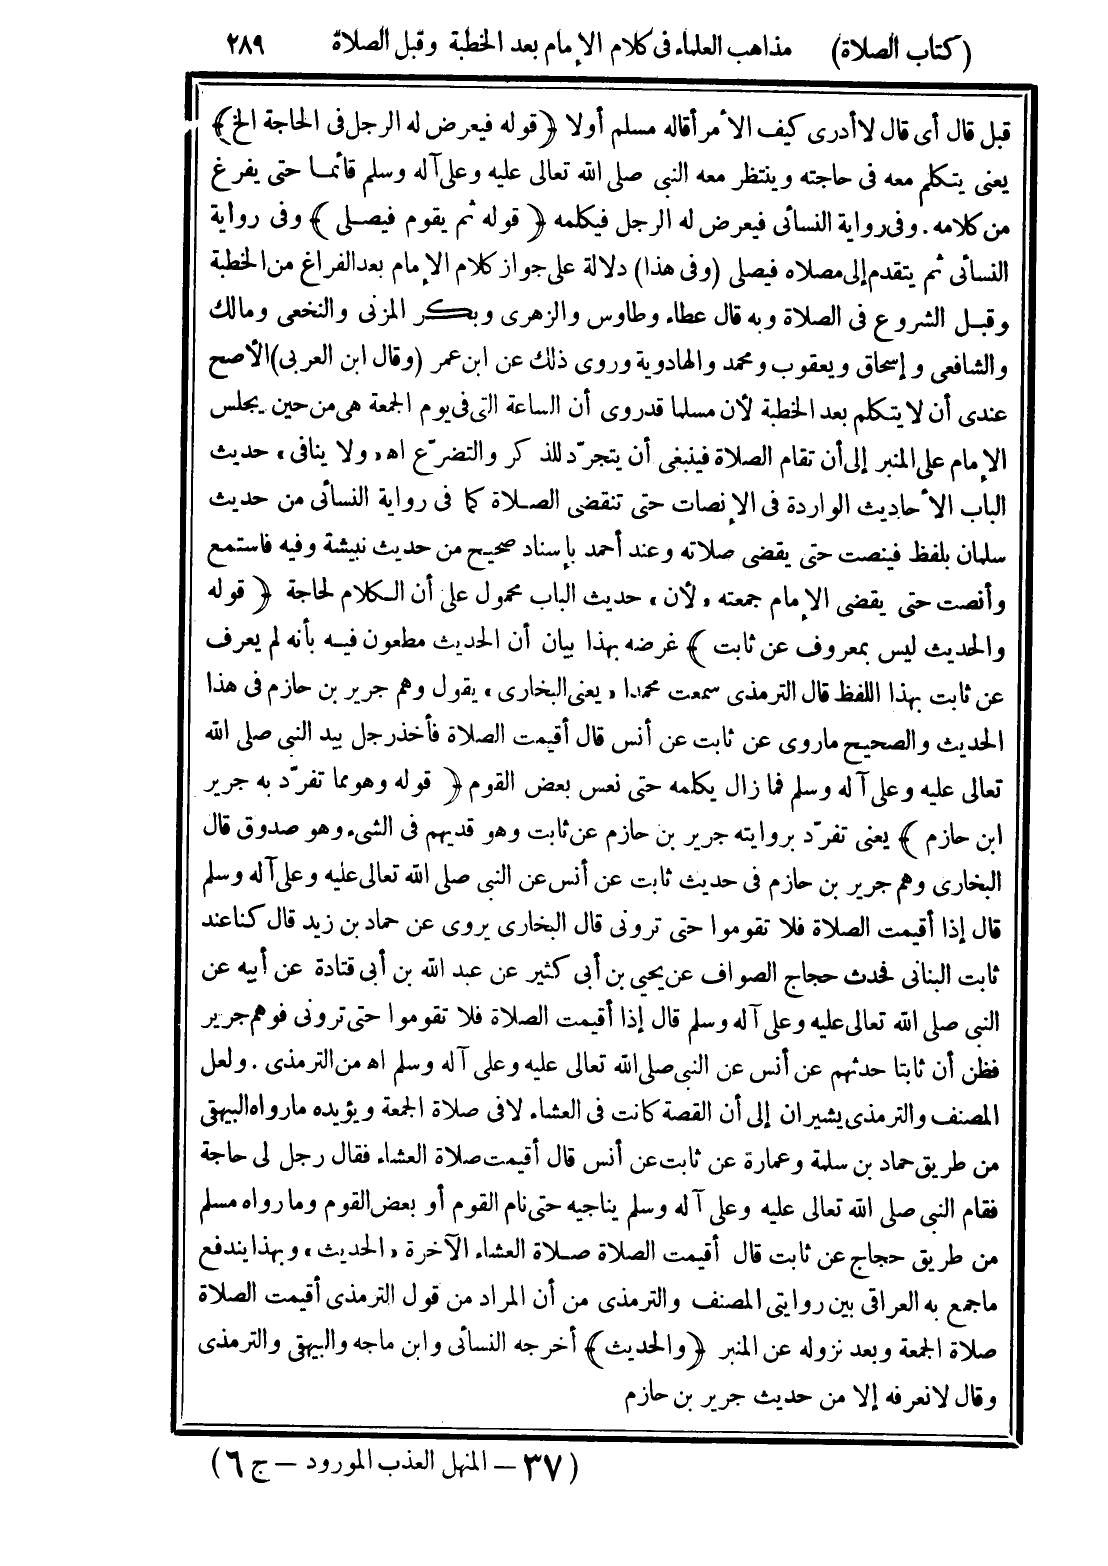 (كتاب الصلاة) مذاهب العلماء فى كلام الإمام بعد الخطبة وقبل الصلاة ٢٨٩
قبل قال أى قال لاأدرى كيف الأمر أقاله مسلم أولا ﴿ قوله فيعرض له الرجل فى الحاجة الخ﴾
يعنى يتكلم معه فى حاجته وينتظر معه النبى صلى الله تعالى عليه وعلى آله وسلم قائما حتى يفرغ
من كلامه . وفى رواية النسائى فيعرض له الرجل فيكلمه ﴿ قوله ثم يقوم فيصلى ﴾ وفى رواية
النسائى ثم يتقدم إلى مصلاه فيصلى (وفى هذا) دلالة على جواز كلام الإمام بعد الفراغ من الخطبة
وقبل الشروع فى الصلاة وبه قال عطاء وطاوس والزهرى وبكر المزنى والنخعى ومالك
والشافعى وإسحاق ويعقوب ومحمد والهادوية وروى ذلك عن ابن عمر (وقال ابن العربى) الأصح
عندى أن لا يتكلم بعد الخطبة لأن مسلما قد روى أن الساعة التى فى يوم الجمعة هى من حين يجلس
الإمام على المنبر إلى أن تقام الصلاة فينبغى أن يتجرّد للذكر والتضرّع اه «ولا ينافى» حديث
الباب الأحاديث الواردة فى الإنصات حتى تنقضى الصلاة كما فى رواية النسائى من حديث
سلمان بلفظ فينصت حتى يقضى صلاته وعند أحمد بإسناد صحيح من حديث نبيشة وفيه فاستمع
وأنصت حتى يقضى الإمام جمعته «لأن» حديث الباب محمول على أن الكلام لحاجة ﴿ قوله
والحديث ليس بمعروف عن ثابت ﴾ غرضه بهذا بيان أن الحديث مطعون فيه بأنه لم يعرف
عن ثابت بهذا اللفظ قال الترمذى سمعت محمدا «يعنى البخارى» يقول وهم جرير بن حازم فى هذا
الحديث والصحيح ماروى عن ثابت عن أنس قال أقيمت الصلاة فأخذ رجل بيد النبى صلى الله
تعالى عليه وعلى آله وسلم فما زال يكلمه حتى نعس بعض القوم ﴿ قوله وهو مما تفرّد به جرير
ابن حازم ﴾ يعنى تفرّد بروايته جرير بن حازم عن ثابت وهو قد يهم فى الشىء وهو صدوق قال
البخارى وهم جرير بن حازم فى حديث ثابت عن أنس عن النبى صلى الله تعالى عليه وعلى آله وسلم
قال إذا أقيمت الصلاة فلا تقوموا حتى ترونى قال البخارى يروى عن حماد بن زيد قال كنا عند
ثابت البنانى فحدث حجاج الصواف عن يحيى بن أبى كثير عن عبد الله بن أبى قتادة عن أبيه عن
النبى صلى الله تعالى عليه وعلى آله وسلم قال إذا أقيمت الصلاة فلا تقوموا حتى ترونى فوهم جرير
فظن أن ثابتا حدثهم عن أنس عن النبى صلى الله تعالى عليه وعلى آله وسلم اه من الترمذى . ولعل
المصنف والترمذى يشيران إلى أن القصة كانت فى العشاء لافى صلاة الجمعة ويؤيده مارواه البيهقى
من طريق حماد بن سلمة وعمارة عن ثابت عن أنس قال أقيمت صلاة العشاء فقال رجل لى حاجة
فقام النبى صلى الله تعالى عليه وعلى آله وسلم يناجيه حتى نام القوم أو بعض القوم وما رواه مسلم
من طريق حجاج عن ثابت قال أقيمت الصلاة صلاة العشاء الآخرة «الحديث» وبهذا يندفع
ماجمع به العراقى بين روايتى المصنف والترمذى من أن المراد من قول الترمذى أقيمت الصلاة
صلاة الجمعة وبعد نزوله عن المنبر ﴿والحديث﴾ أخرجه النسائى وابن ماجه والبيهقى والترمذى
وقال لانعرفه إلا من حديث جرير بن حازم
(٣٧ – المنهل العذب المورود – ج ٦)